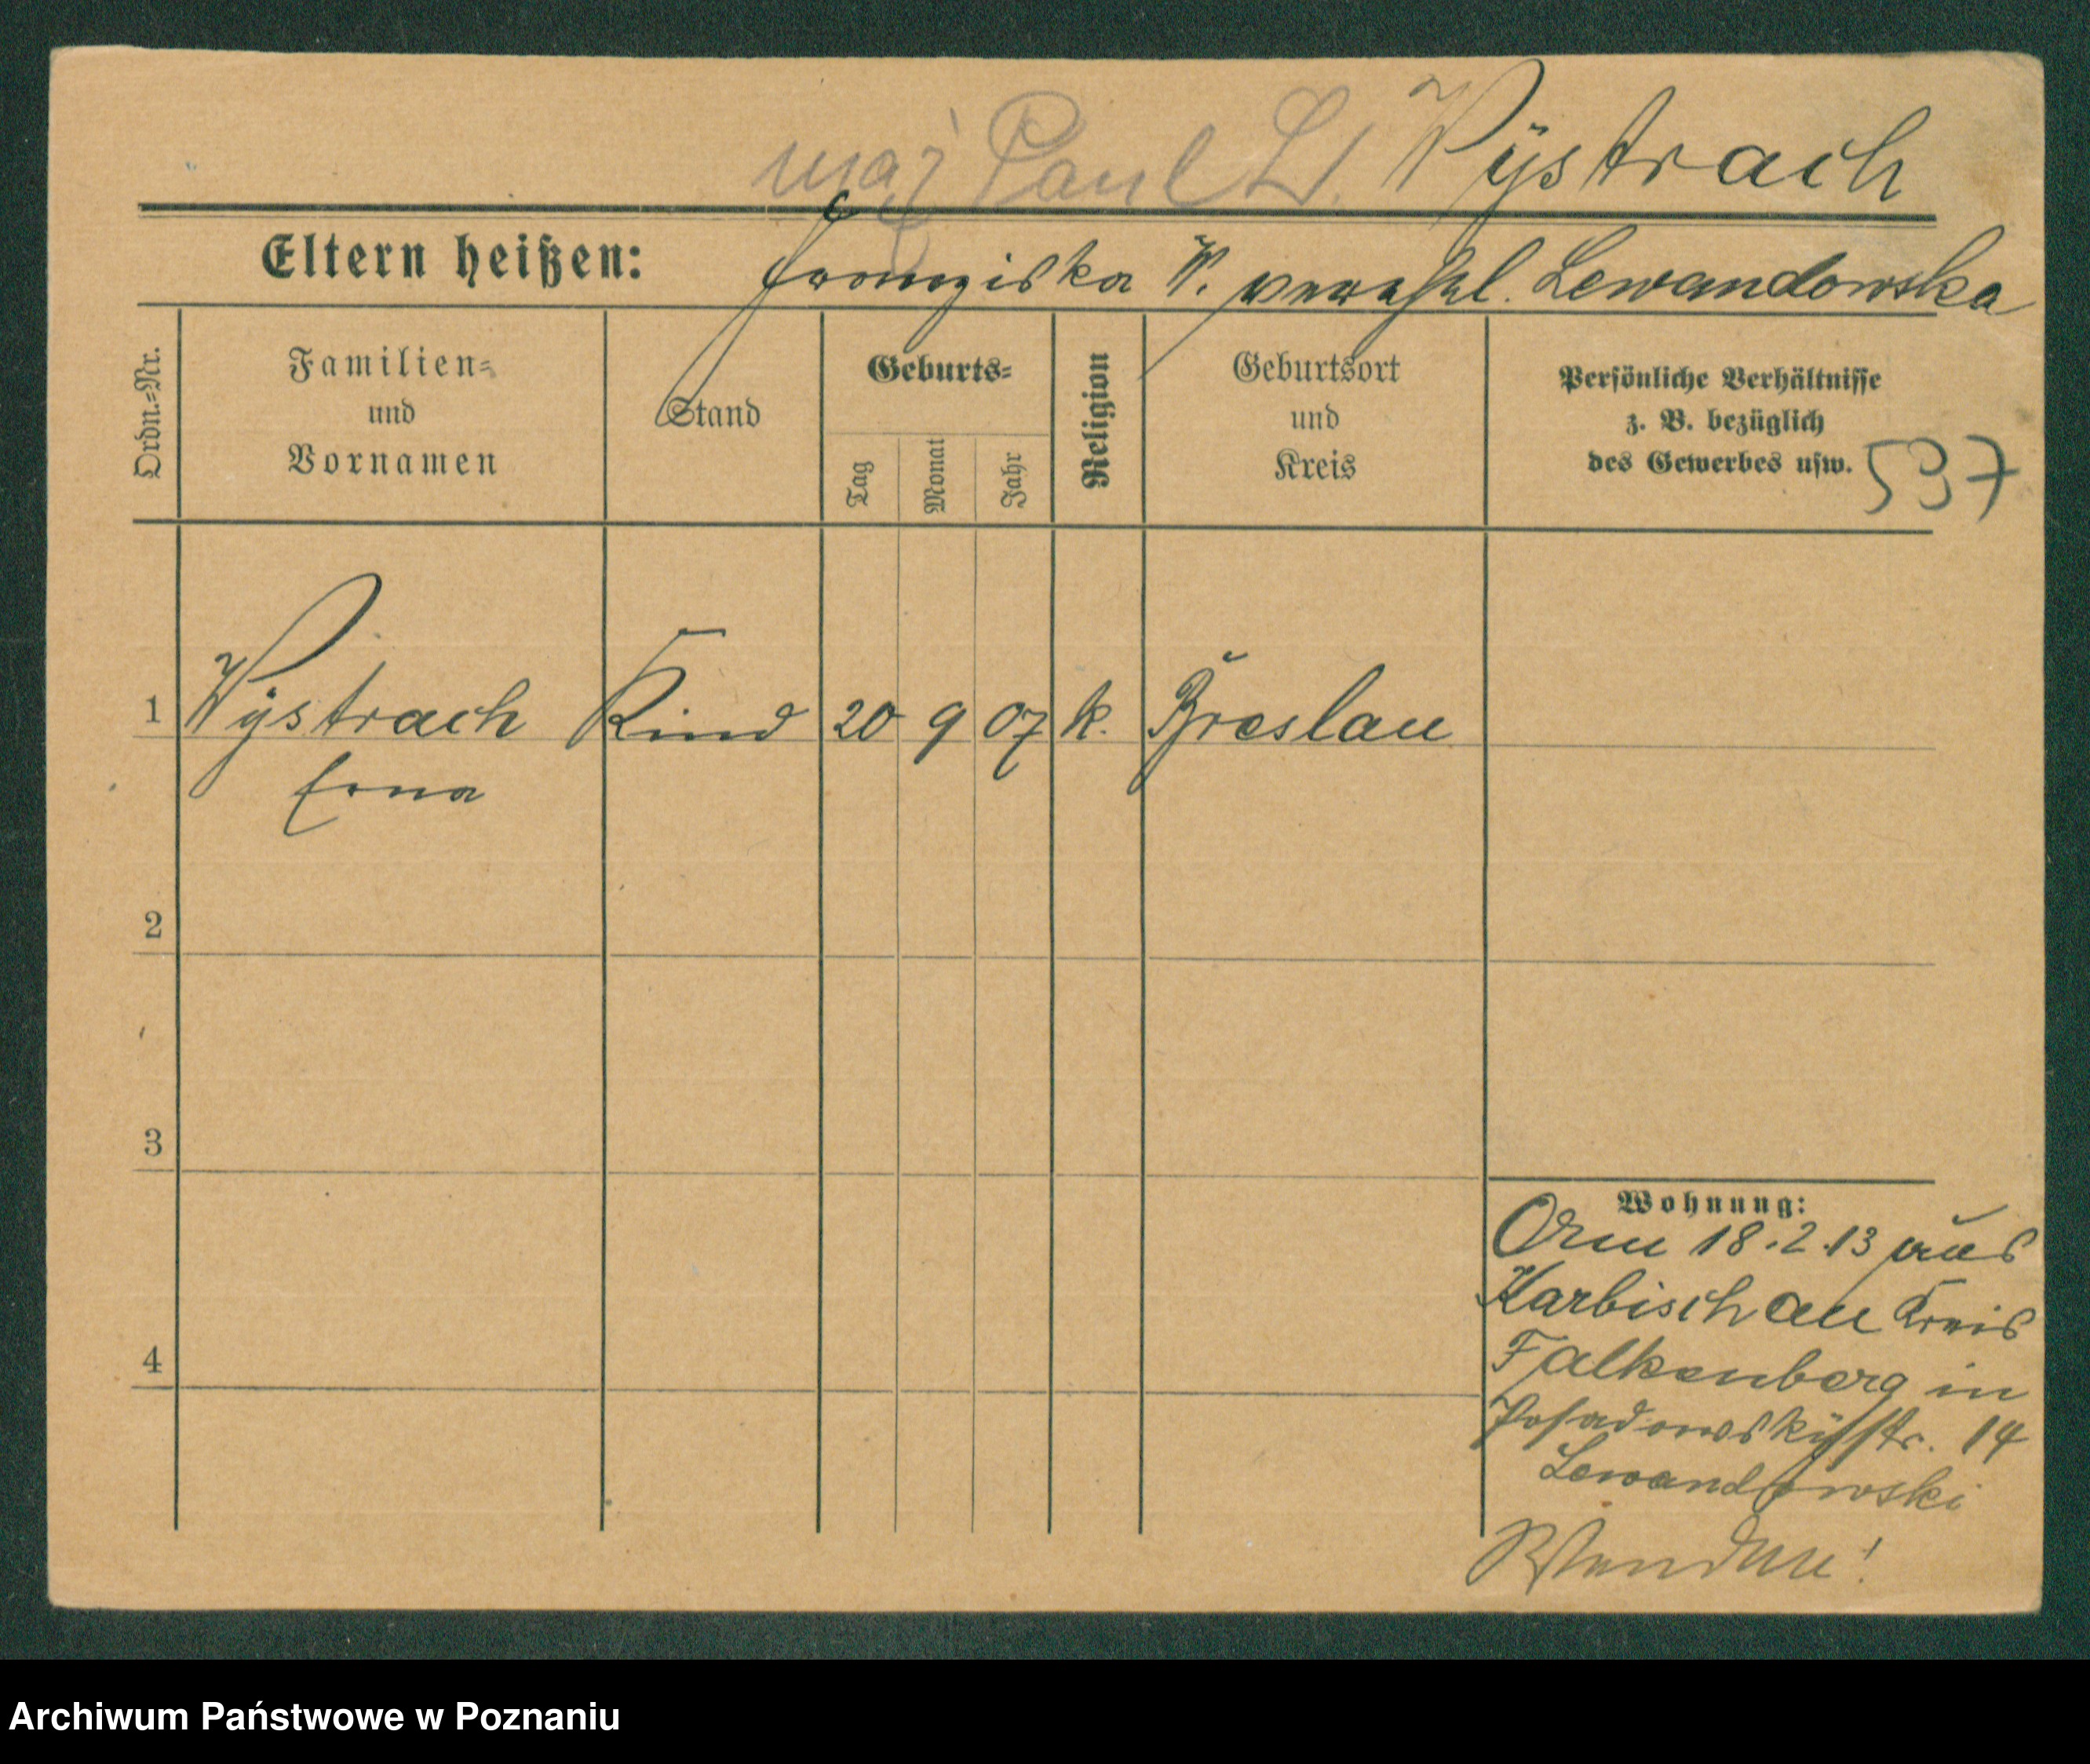 mąż Paul L. Wÿstrach
Eltern heißen: Franziska W. verehel. Lewandowska
Ordn.=Nr.
Familien=
und
Vornamen
Stand
Geburts=
Tag
Monat
Jahr
Religion
Geburtsort
und
Kreis
Persönliche Verhältnisse
z. B. bezüglich
des Gewerbes usw.
537
1 Wÿstrach Kind 20 9 07 k. Breslau
Erna
2
3
4
Wohnung:
18.2.13 aus
Karbischau Kreis
Falkenberg in
Posadowskÿstr. 14
Lewandowski
Wenden!
Archiwum Państwowe w Poznaniu